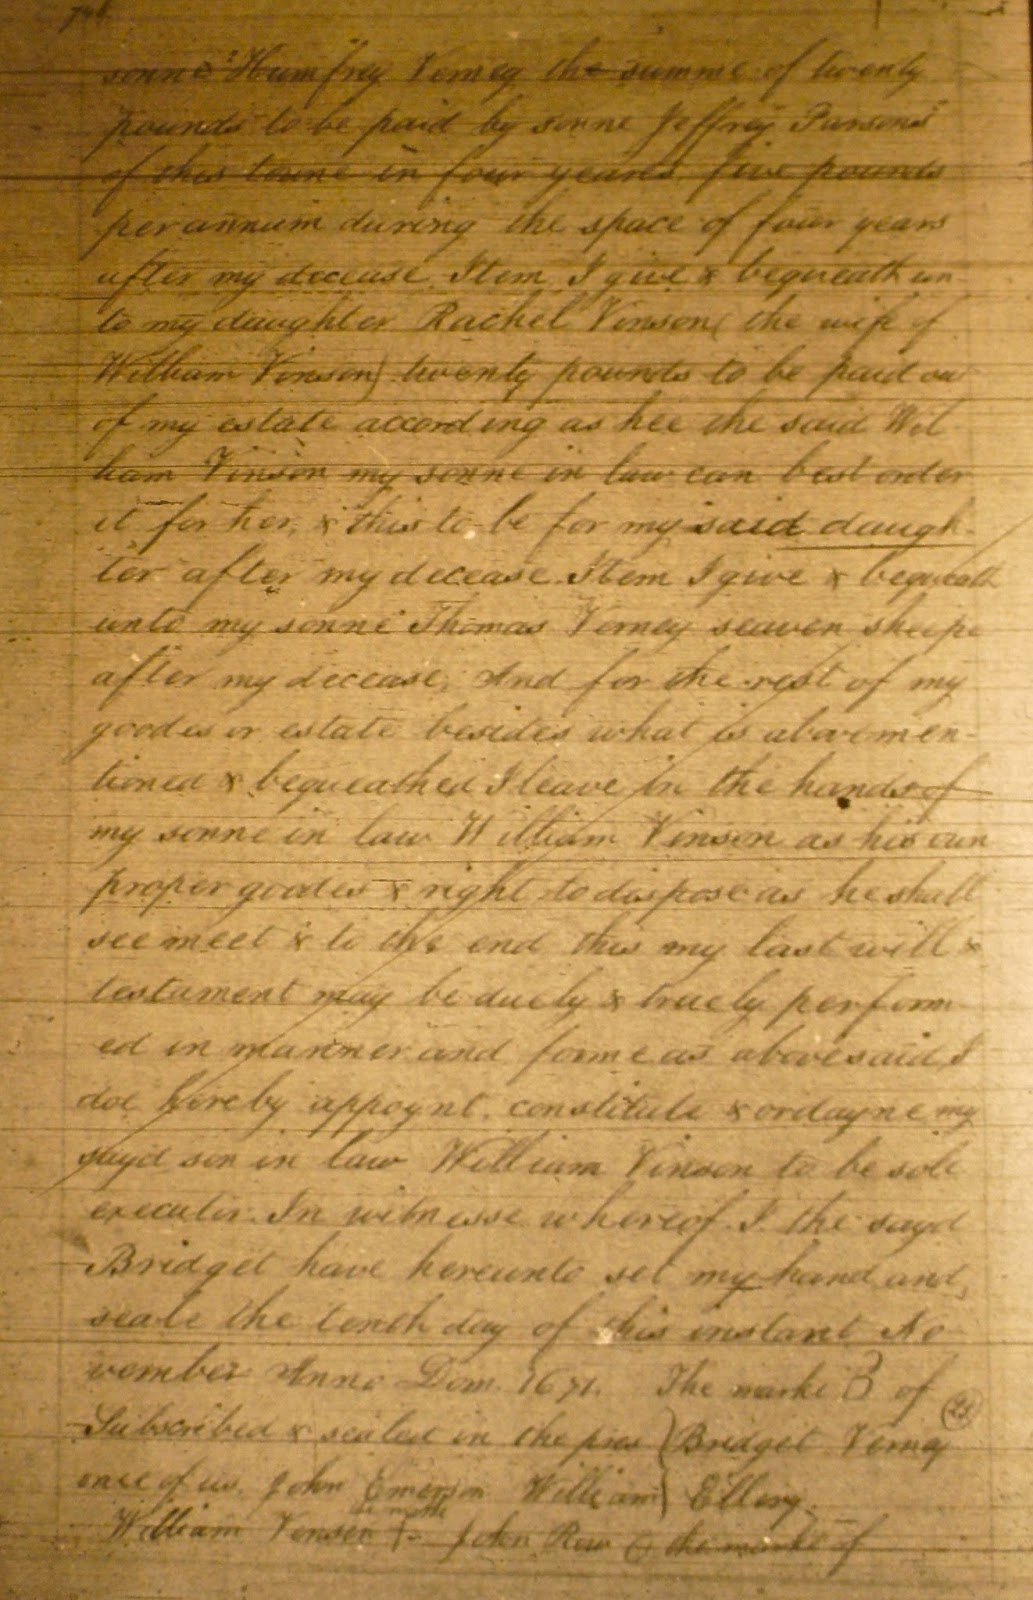 sonne Humfrey Verney the summe of twenty
pounds to be paid by sonne Jeffrey Parsons
of this towne in four years five pounds
per annum during the space of four years
after my decease. Item I give & bequeath un
to my daughter Rachel Vinson ( the wife of
William Vinson) twenty pounds to be paid out
of my estate according as hee the said Wil
liam Vinson my sonne in law can best order
it for her, & this to be for my said daugh-
ter after my decease. Item I give & bequeath
unto my sonne Thomas Verney seaven sheepe
after my decease, And for the rest of my
goodes or estate besides what is abovemen-
tioned & bequeathed I leave in the hands of
my sonne in law William Vinson as his own
proper goodes & right to dispose as he shall
see meet & to the end this my last will &
testament may be duely & truely perform
ed in manner and forme as abovesaid I
doe hereby appoynt, constitute & ordayne my
sayd son in law William Vinson to be sole
executor. In witnesse whereof I the sayd
Bridget have hereunto set my hand and
seale the tenth day of this instant No
vember Anno Dom. 1671. The marke B of
Subscribed & sealed in the pres ) Bridget Verney
ence of us, John Emerson William ) Ellery.
William Vinson John Row the marke of